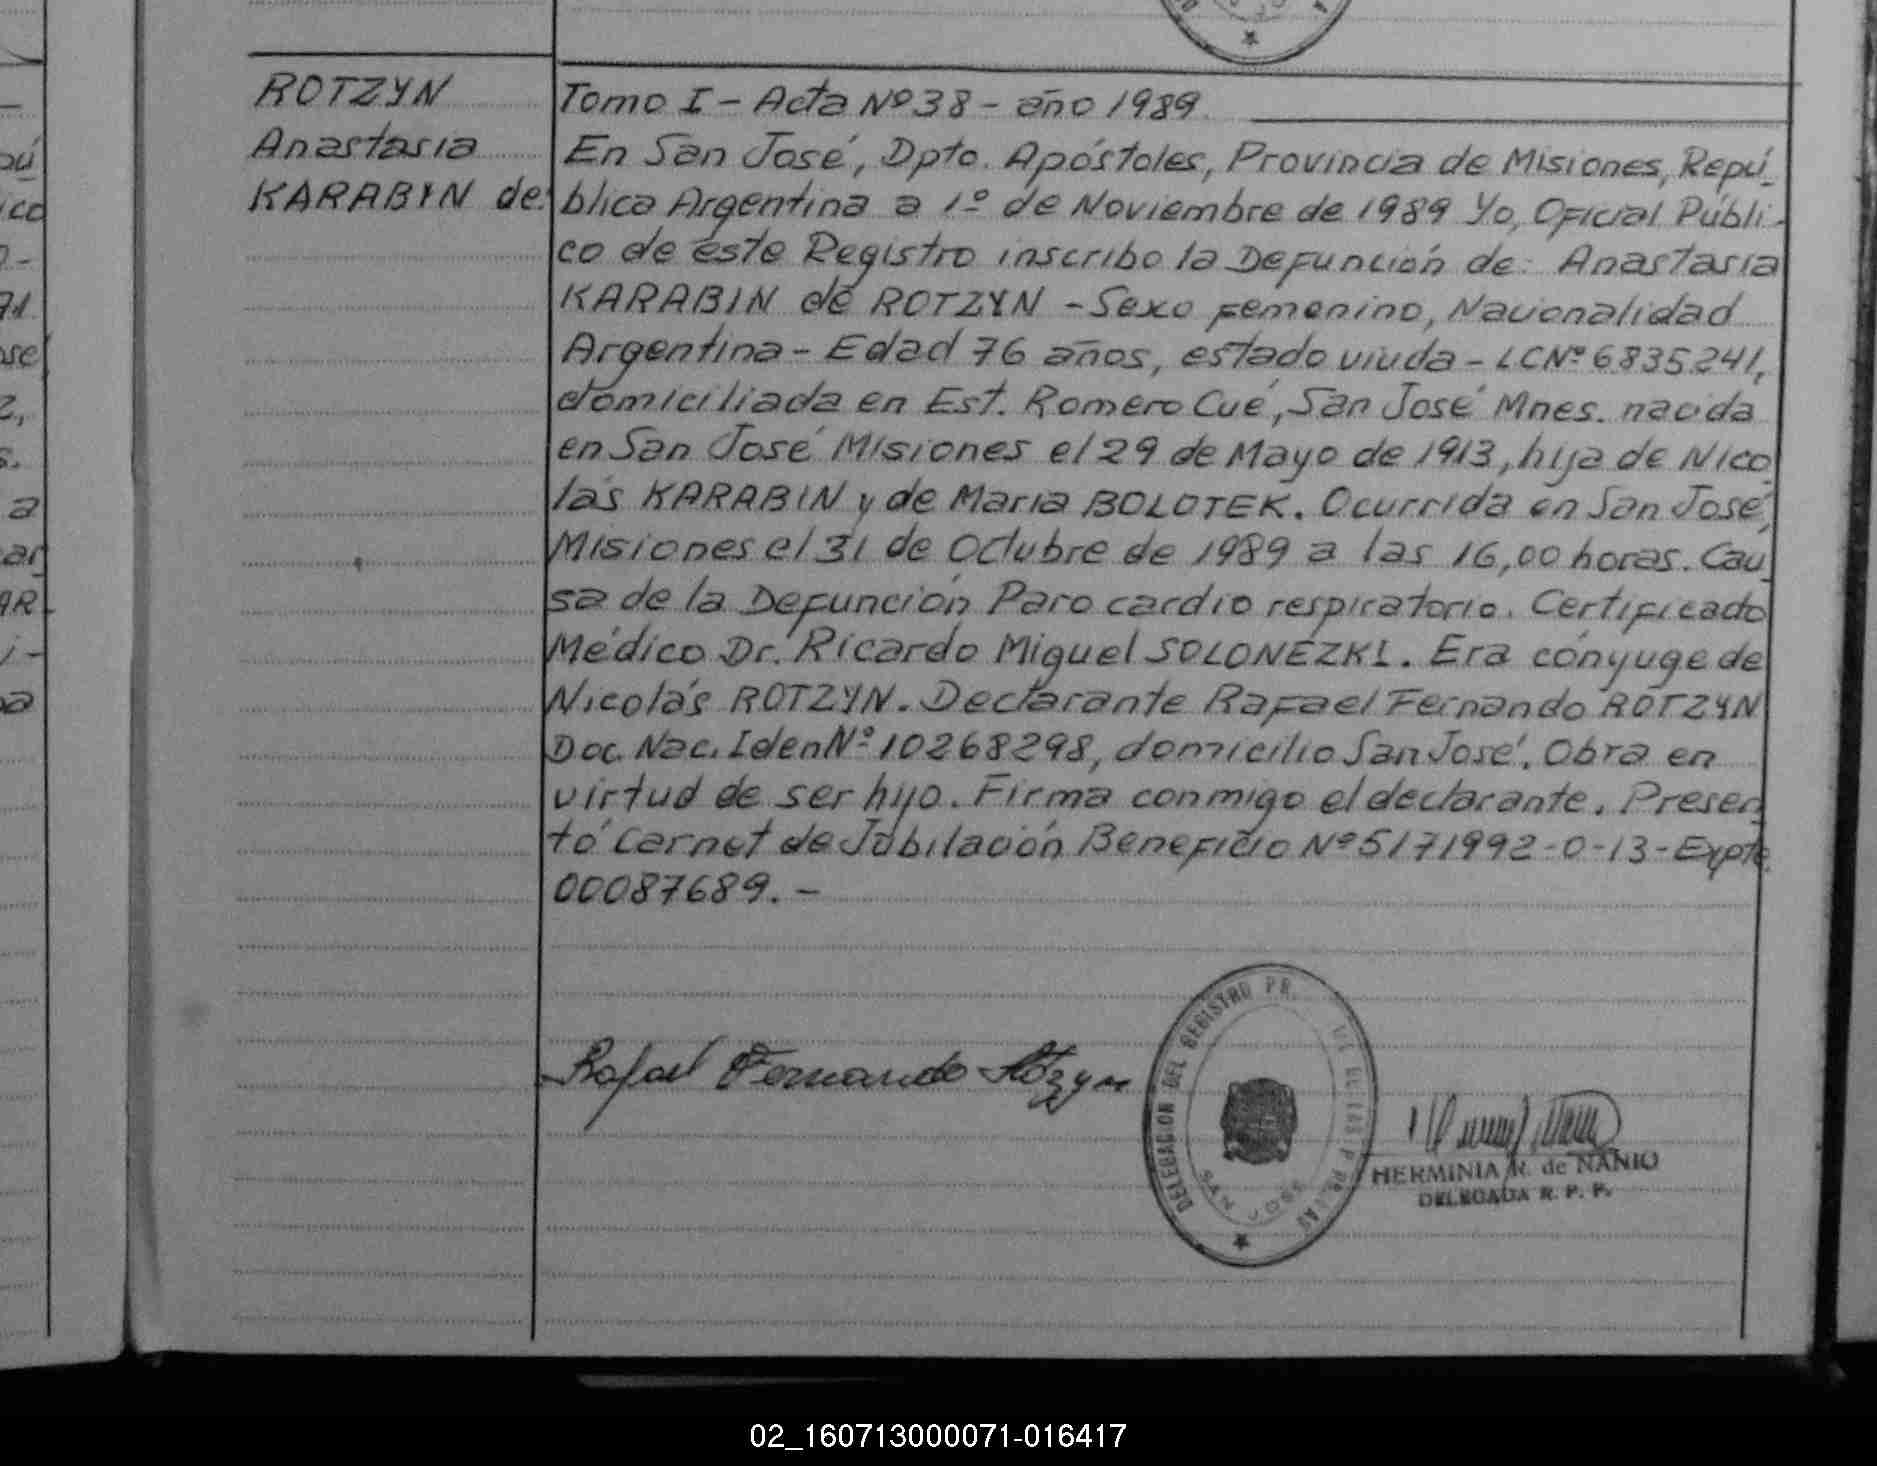 ROTZYN
Anastasia
KARABIN de.
Tomo I - Acta Nº 38 - año 1989.
En San José, Dpto. Apóstoles, Provincia de Misiones, Repú_
blica Argentina a 1º de Noviembre de 1989 Yo, Oficial Públi-
co de este Registro inscribo la Defunción de: Anastasia
KARABIN de ROTZYN - Sexo femenino, Nacionalidad
Argentina - Edad 76 años, estado viuda - LC Nº 6835241,
domiciliada en Est. Romero Cué, San José Mnes. nacida
en San José Misiones el 29 de Mayo de 1913, hija de Nico_
lás KARABIN y de Maria BOLOTEK. Ocurrida en San José,
Misiones el 31 de Octubre de 1989 a las 16,00 horas. Cau_
sa de la Defunción Paro cardio respiratorio. Certificado
Médico Dr. Ricardo Miguel SOLONEZKI. Era cónyuge de
Nicolás ROTZYN. Declarante Rafael Fernando ROTZYN
Doc. Nac. Iden Nº 10268298, domicilio San José. Obra en
virtud de ser hijo. Firma conmigo el declarante. Presen_
tó Carnet de Jubilación Beneficio Nº 5171992-0-13-Expte.
00087689. -
Rafael Fernando Rotzyn
DELEGACION DEL REGISTRO PR.
SAN JOSE
HERMINIA R. de NANIO
DELEGADA R. P. P.
02_160713000071-016417